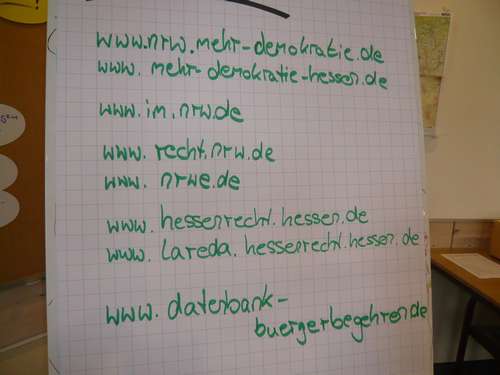 www.nrw.mehr-demokratie.de
www.mehr-demokratie-hessen.de
www.im.nrw.de
www.recht.nrw.de
www.nrwe.de
www.hessenrecht.hessen.de
www.lareda.hessenrecht.hessen.de
www.datenbank-
buergerbegehren.de